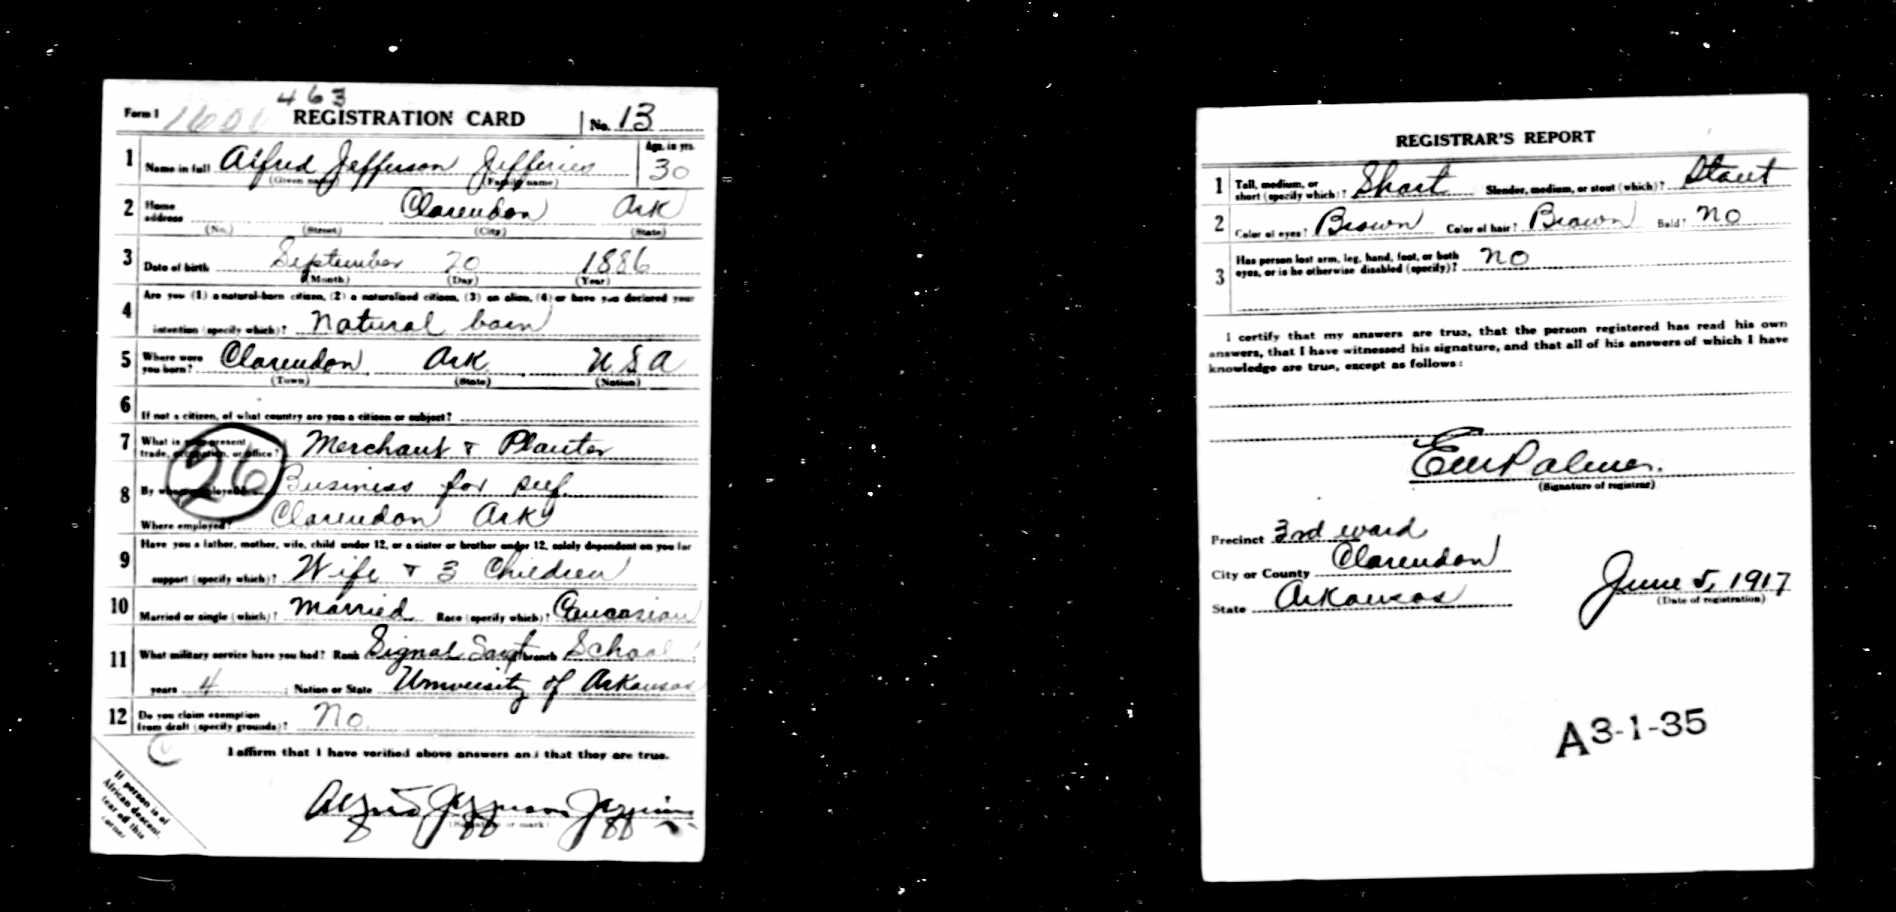 463
Form 1 REGISTRATION CARD No. 13
1 Name in full Alfred Jefferson Jefferies Age, in yrs. 30
(Given name) (Family name)
2 Home address Clarendon Ark
(No.) (Street) (City) (State)
3 Date of birth September 20 1886
(Month) (Day) (Year)
4 Are you (1) a natural-born citizen, (2) a naturalized citizen, (3) an alien, (4) or have you declared your
intention (specify which)? Natural born
5 Where were you born? Clarendon Ark U S A
(Town) (State) (Nation)
6 If not a citizen, of what country are you a citizen or subject?
7 What is your present trade, occupation, or office? Merchant & Planter
26
8 By whom employed? Business for self
Where employed? Clarendon Ark
9 Have you a father, mother, wife, child under 12, or a sister or brother under 12, solely dependent on you for
support (specify which)? Wife & 3 Children
10 Married or single (which)? Married Race (specify which)? Caucasian
11 What military service have you had? Rank Signal Sargt branch School
years 4 ; Nation or State University of Arkansas
12 Do you claim exemption from draft (specify grounds)? No
I affirm that I have verified above answers and that they are true.
Alfred Jefferson Jefferies
(Signature or mark)
If person is of
African descent,
tear off this
corner
REGISTRAR'S REPORT
1 Tall, medium, or short (specify which)? Short Slender, medium, or stout (which)? Stout
2 Color of eyes? Brown Color of hair? Brown Bald? No
3 Has person lost arm, leg, hand, foot, or both eyes, or is he otherwise disabled (specify)? No
I certify that my answers are true, that the person registered has read his own
answers, that I have witnessed his signature, and that all of his answers of which I have
knowledge are true, except as follows:
EW Palmer.
(Signature of registrar)
Precinct 3rd ward
City or County Clarendon
State Arkansas
June 5, 1917
(Date of registration)
A3-1-35